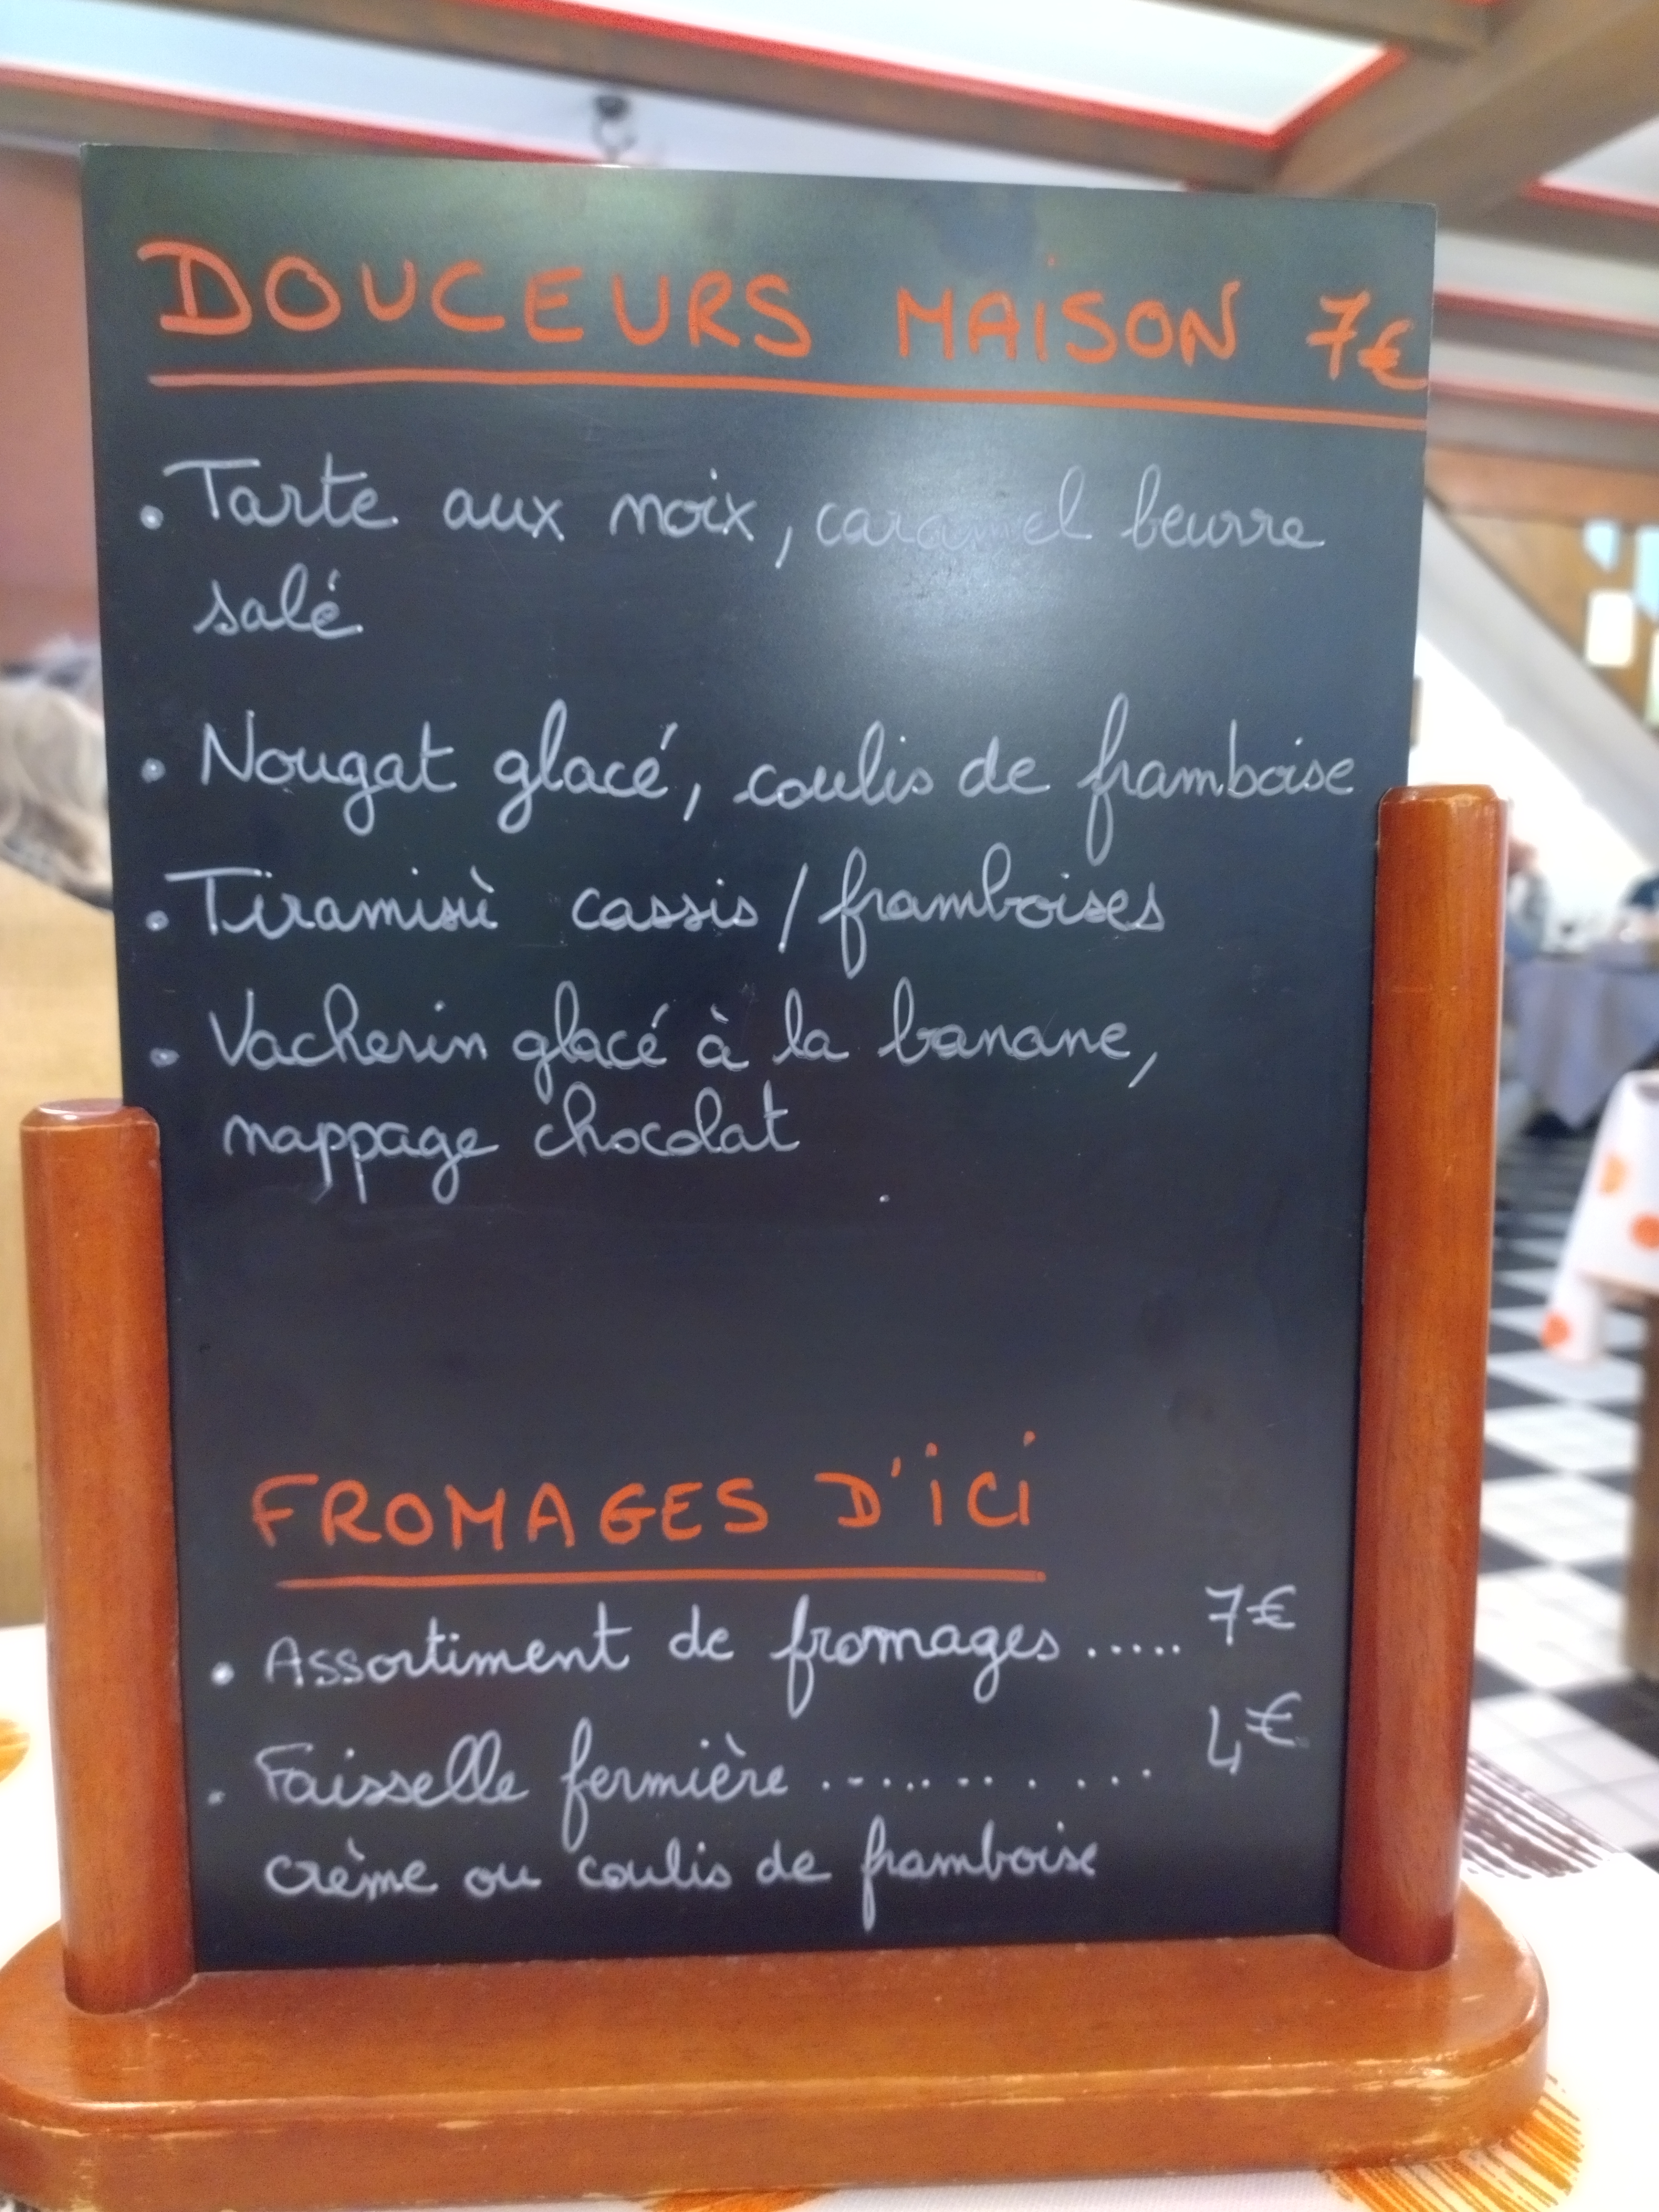 DOUCEURS MAiSON 7€
• Tarte aux noix, caramel beurre
salé
• Nougat glacé, coulis de framboise
• Tiramisù cassis / framboises
• Vacherin glacé à la banane,
nappage chocolat
FROMAGES D'iCi
• Assortiment de fromages ..... 7€
• Faisselle fermière .......... 4€
crème ou coulis de framboise